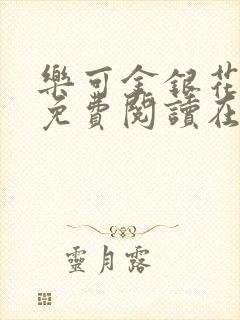 樂可金銀花
免費閱讀在
靈月露